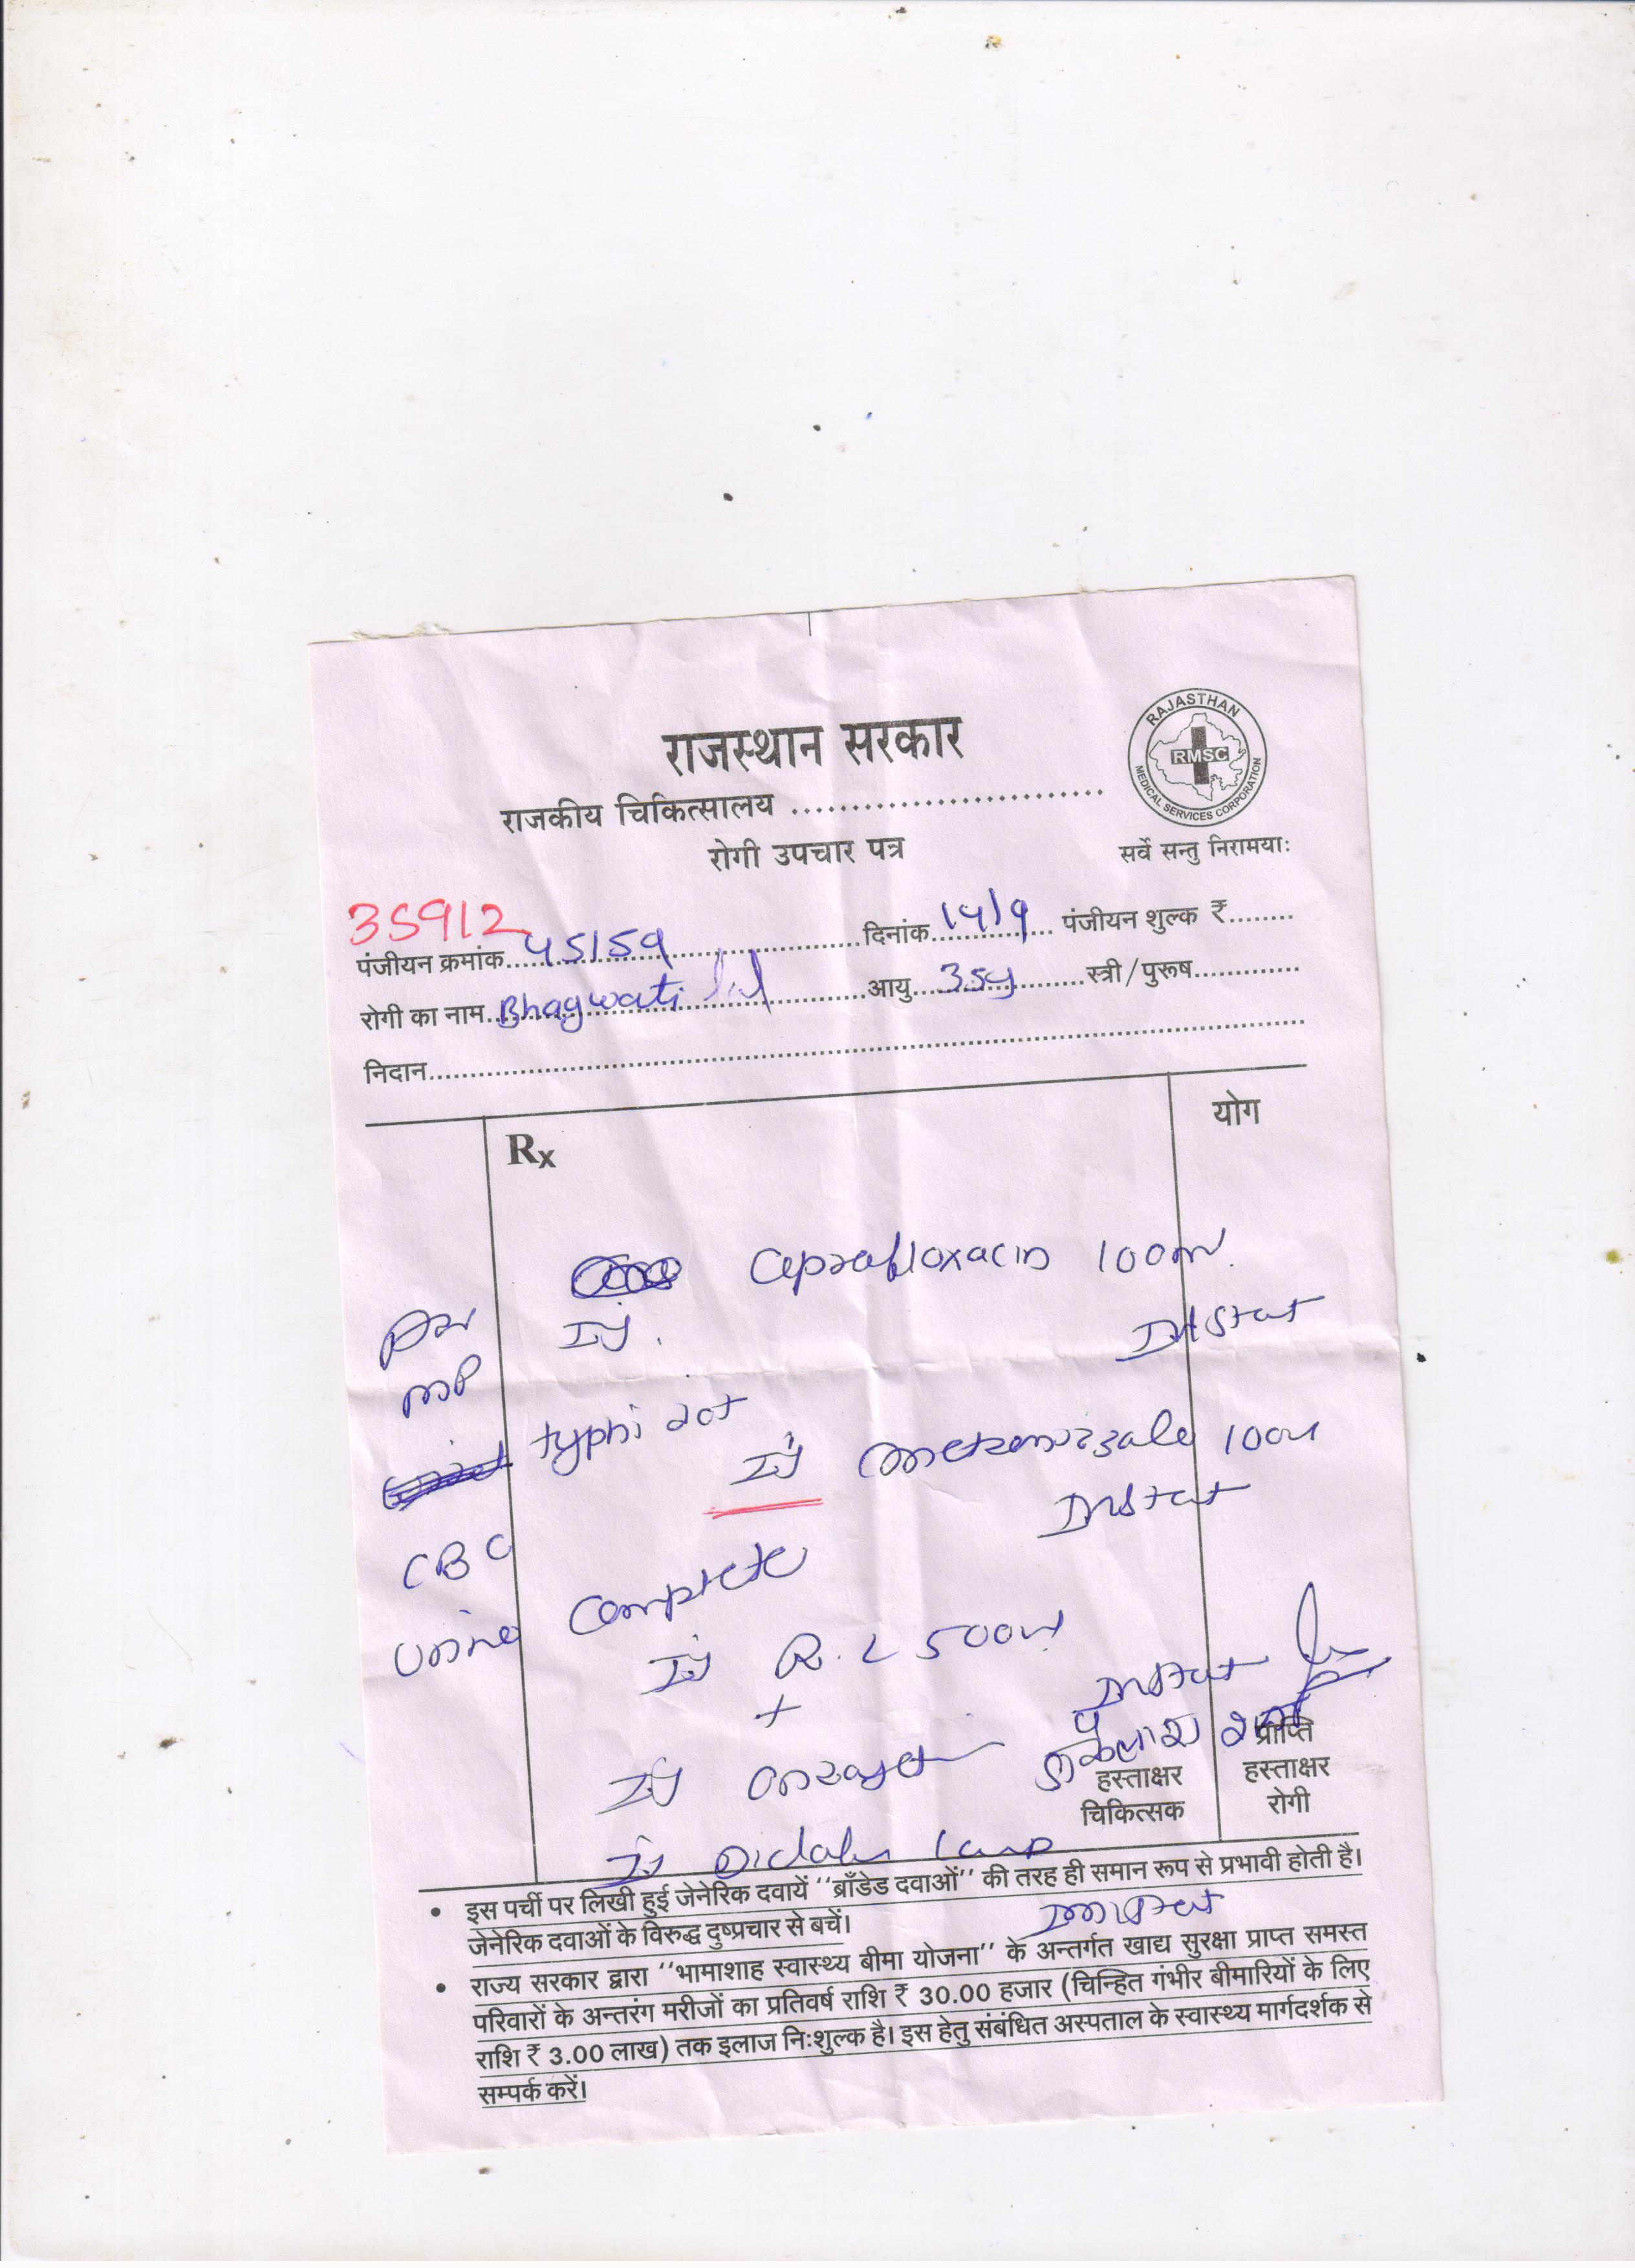 राजस्थान सरकार
RAJASTHAN
RMSC
MEDICAL SERVICES CORPORATION
राजकीय चिकित्सालय ..........................
रोगी उपचार पत्र
सर्वे सन्तु निरामयाः
35912
पंजीयन क्रमांक 45159 दिनांक 14/9 पंजीयन शुल्क ₹........
रोगी का नाम Bhagwati आयु 35y स्त्री/पुरूष.............
निदान
Rx
योग
Ciprofloxacin 100ml
Inj.
MP
typhi dot
Inj 100ml
CBC
urine Complete
Inj R.L 500ml
+
Inj
Inj 1amp
प्राप्ति
हस्ताक्षर हस्ताक्षर
चिकित्सक रोगी
• इस पर्ची पर लिखी हुई जेनेरिक दवायें ''ब्राँडेड दवाओं'' की तरह ही समान रूप से प्रभावी होती है।
जेनेरिक दवाओं के विरुद्ध दुष्प्रचार से बचें।
• राज्य सरकार द्वारा ''भामाशाह स्वास्थ्य बीमा योजना'' के अन्तर्गत खाद्य सुरक्षा प्राप्त समस्त
परिवारों के अन्तरंग मरीजों का प्रतिवर्ष राशि ₹ 30.00 हजार (चिन्हित गंभीर बीमारियों के लिए
राशि ₹ 3.00 लाख) तक इलाज निःशुल्क है। इस हेतु संबंधित अस्पताल के स्वास्थ्य मार्गदर्शक से
सम्पर्क करें।